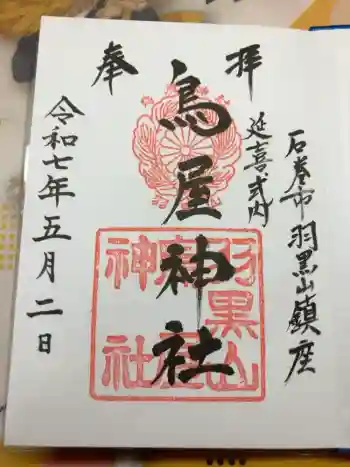 奉拝
石巻市羽黒山鎮座
延喜式内
鳥屋神社
令和七年五月二日
羽黒山
鳥屋
神社